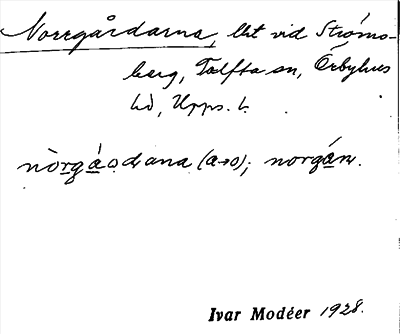 Norrgårdarna, llit vid Ströms-
berg, Tolfta sn, Örbyhus
hd, Upps. l.
nòrgáodana (a→o); norgán.
Ivar Modéer 1928.